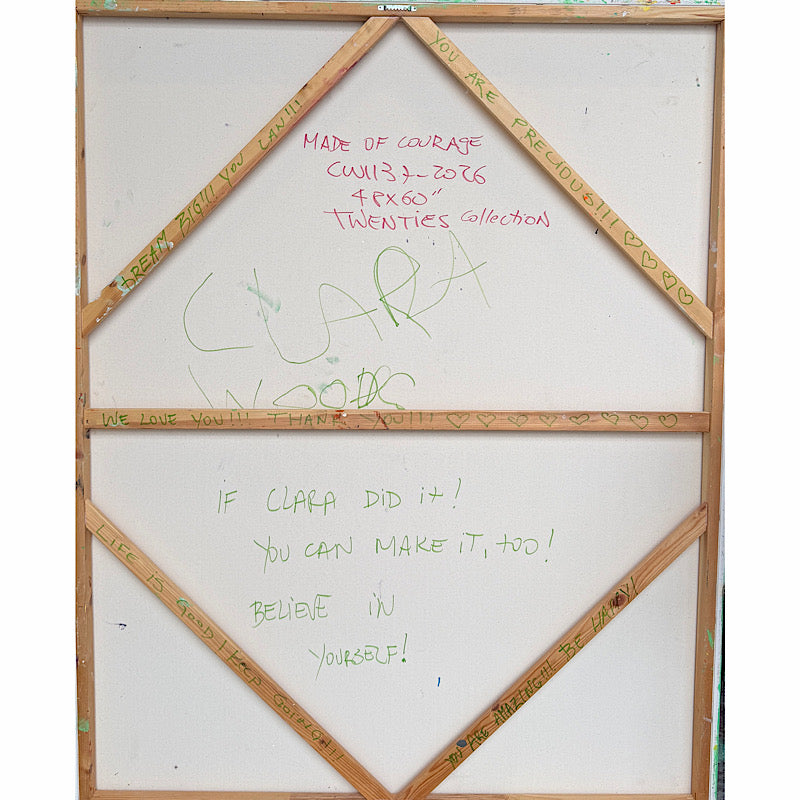 YOU ARE PRECIOUS!!! ♡♡♡♡
DREAM BIG!!! YOU CAN!!!
MADE OF COURAGE
CW1137-2026
48X60"
TWENTIES Collection
CLARA
WOODS
WE LOVE YOU!!! THANK YOU!!!! ♡♡♡♡♡♡♡♡
iF CLARA DiD it!
YOU CAN MAKE iT, too!
BELIEVE iN
YOURSELF!
LIFE IS GOOD! KEEP GOING!!!
YOU ARE AMAZING!!! BE HAPPY!